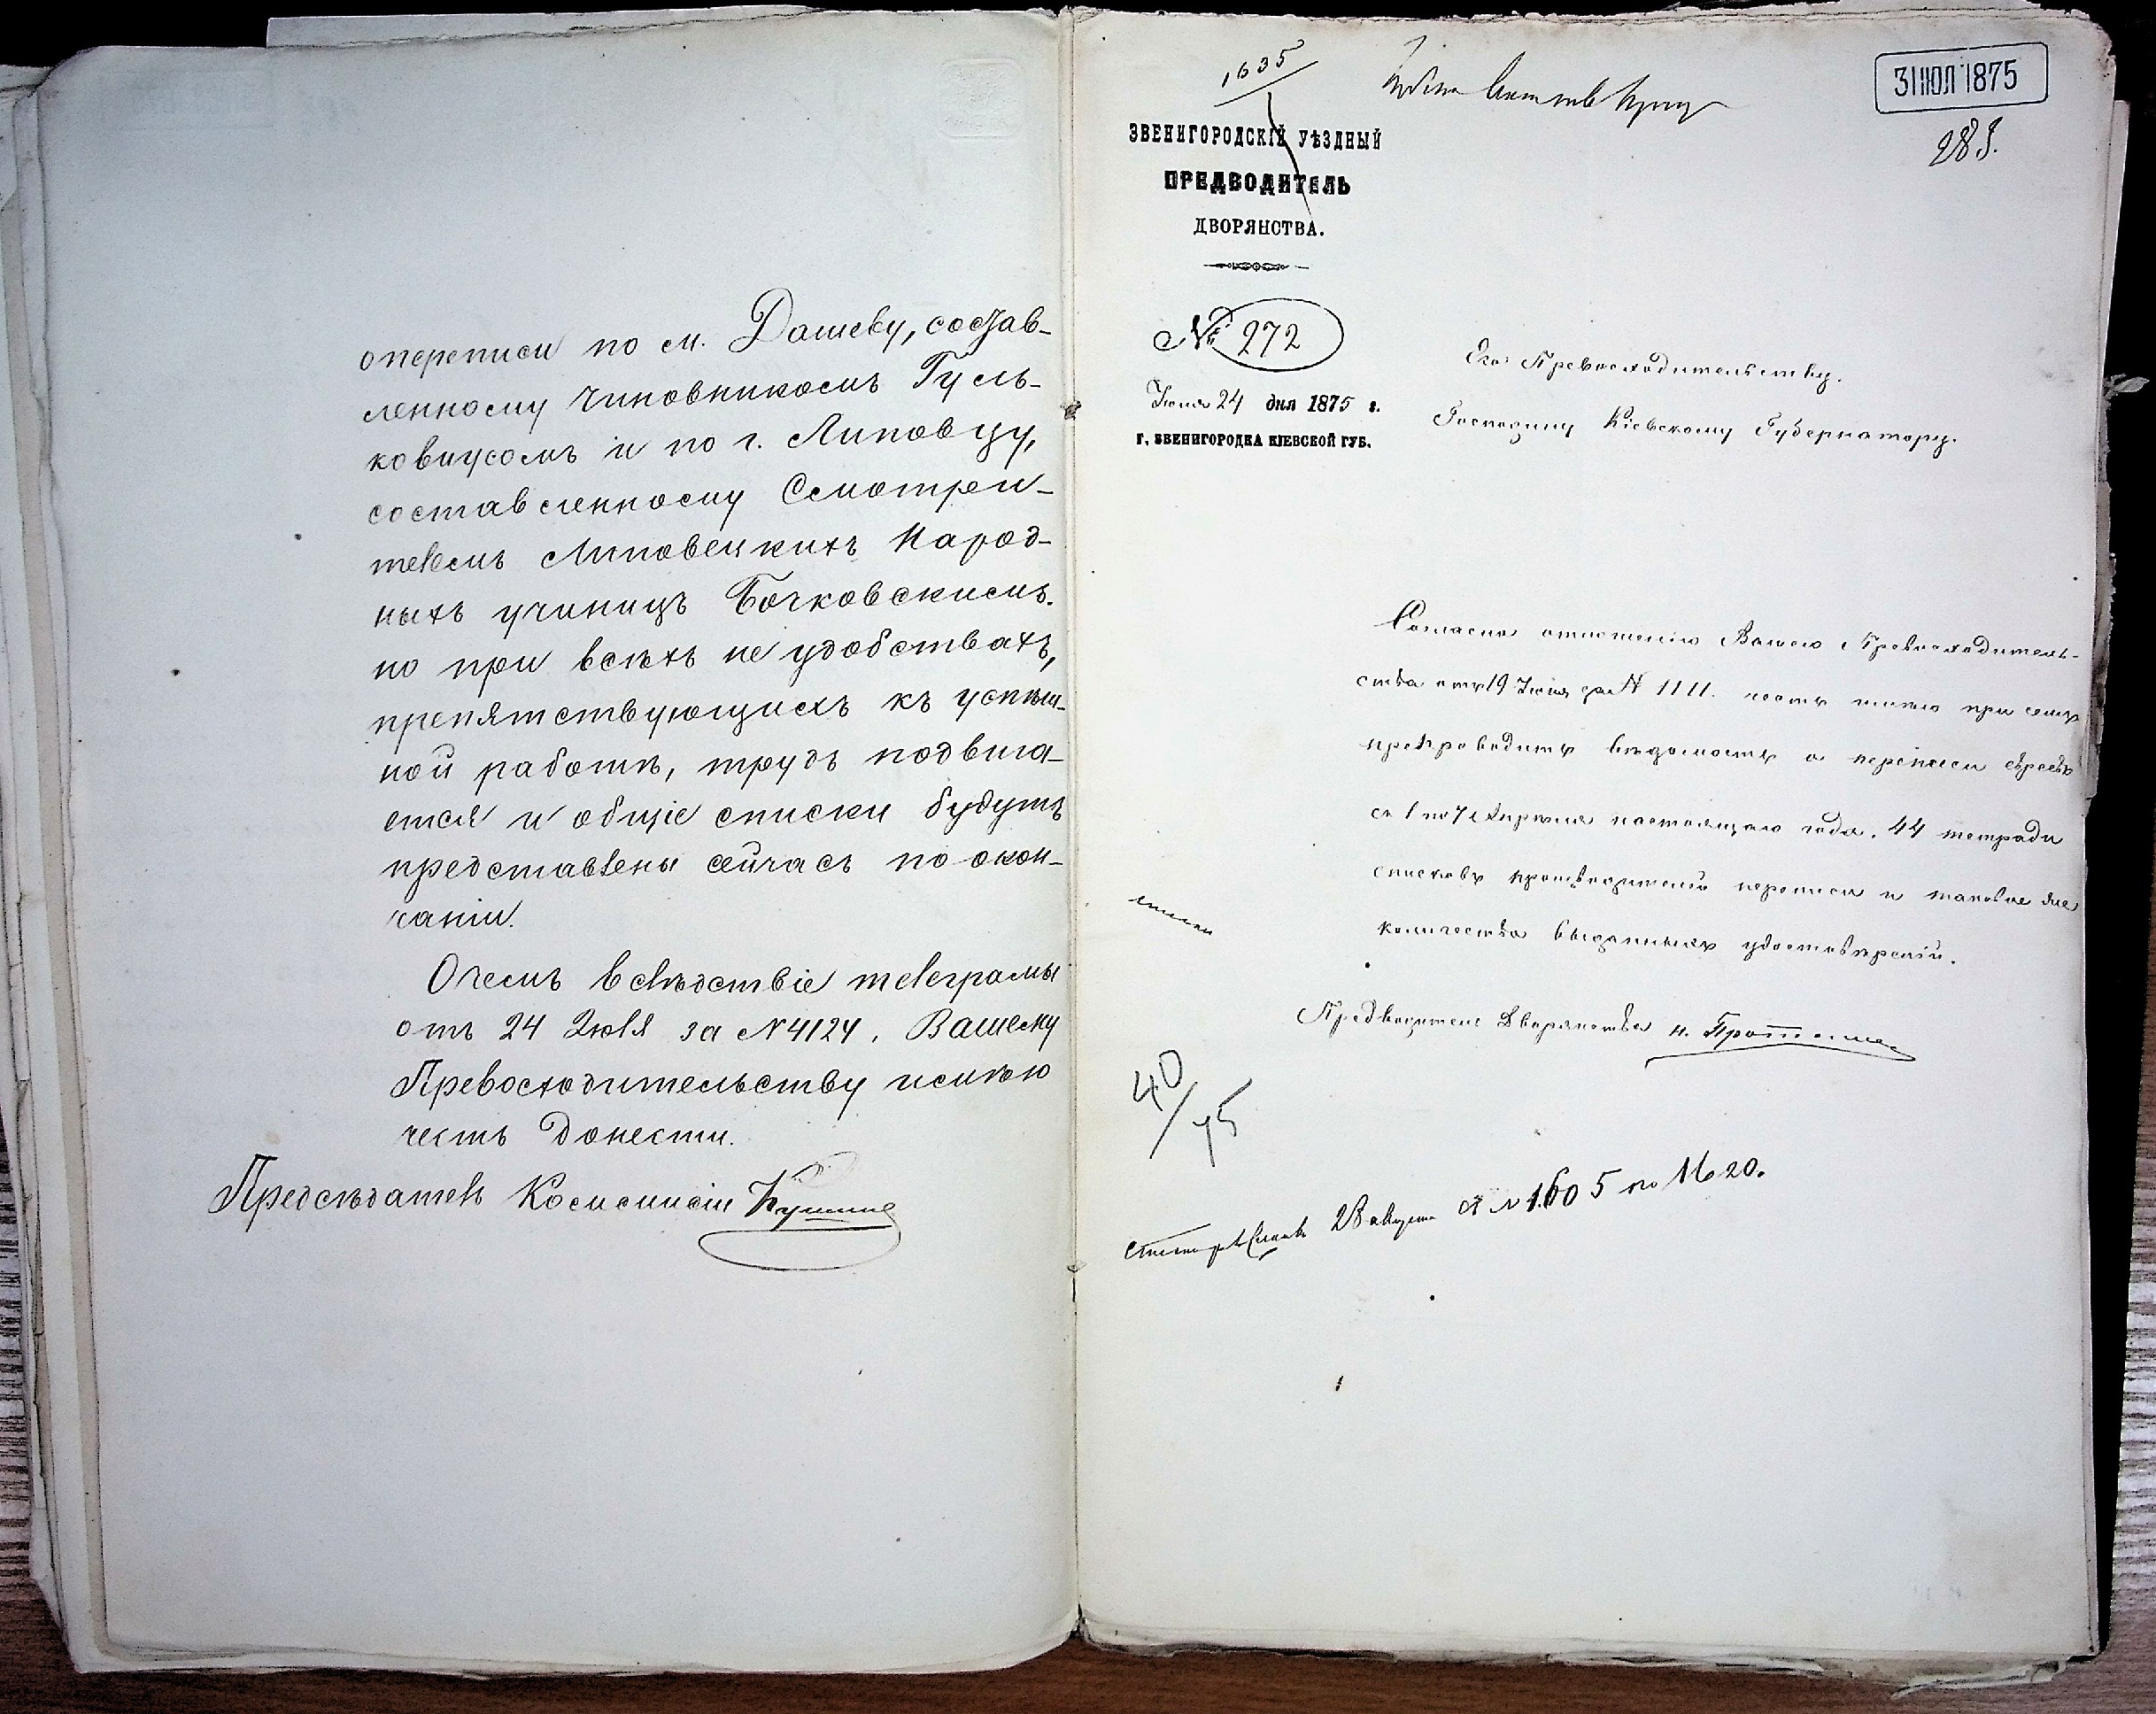 опереписи по м. Дашеву, состав-
ленному Чиновникомъ Гуль-
ковиусомъ и по г. Липовцу,
составленному Смотри-
телемъ Липовецкихъ Народ-
ныхъ училищъ Бочковскимъ.
но при всѣхъ не удобствахъ,
препятствующихъ къ успѣш-
ной работѣ, трудъ подвига-
ется и общіе списки будутъ
представлены сейчасъ по окон-
чаніи.
Очемъ вслѣдствіе телеграмы
отъ 24 Іюля за № 4124, Вашему
Превосходительству имѣю
честь донести.
Предсѣдатель Коммисіи
1635
31 ІЮЛ 1875
283.
ЗВЕНИГОРОДСКІЙ УѢЗДНЫЙ
ПРЕДВОДИТЕЛЬ
ДВОРЯНСТВА.
№ 272
24 дня 1875 г.
Г. ЗВЕНИГОРОДКА КІЕВСКОЙ ГУБ.
Его Превосходительству.
Господину Кіевскому Губернатору.
Согласно отношенію Вашего Превосходитель-
ства отъ 19 Іюня за № 1111. честь имѣю при семъ
препроводить вѣдомость о переписи евреевъ
съ 1 по 7 Апрѣля настоящаго года, 44 тетради
списковъ производителей переписи и таковое же
количество выданныхъ удостовѣреній.
Предводитель Дворянства
40/75
28 августа № 1605 по 1620.